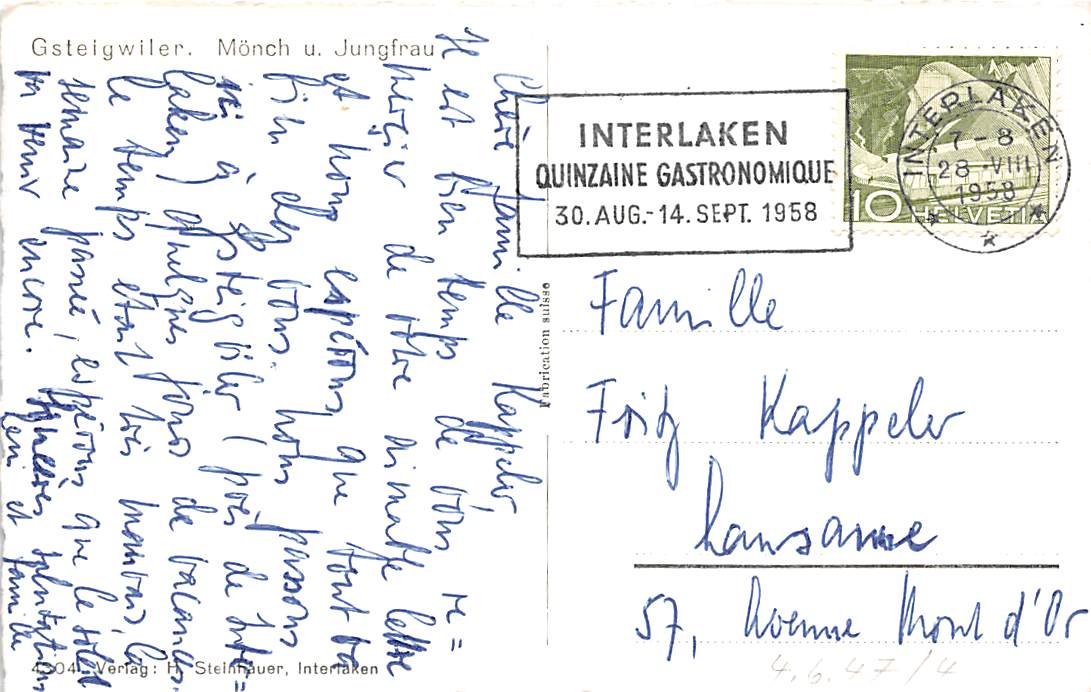 Gsteigwiler. Mönch u. Jungfrau
Chère famille Kappeler,
Il est bien temps de vous re=
mercier de votre aimable lettre
et nous espérons que tout va
bien chez vous. Nous passons
ici à Gsteigwiler (près de Inter=
laken) quelques jours de vacances.
Le temps étant très mauvais la
semaine passée, espérons que le soleil
va venir encore.
salutations
et famille
INTERLAKEN
QUINZAINE GASTRONOMIQUE
30. AUG.-14. SEPT. 1958
INTERLAKEN
7-8
28.VIII
1958
10 HELVETIA
Fabrication suisse
Famille
Fritz Kappeler
Lausanne
57, Avenue Mont d'Or
4304 Verlag: H. Steinhauer, Interlaken
4.6.47/4